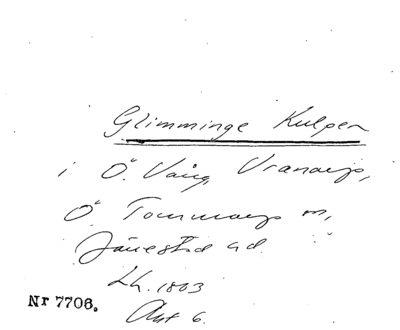 Glimminge Kulpen
i Ö. Vång, Vranarp,
Ö. Tommarp m,
Järrestad hd.
Lh. 1803
Akt 6.
Nr 7706.